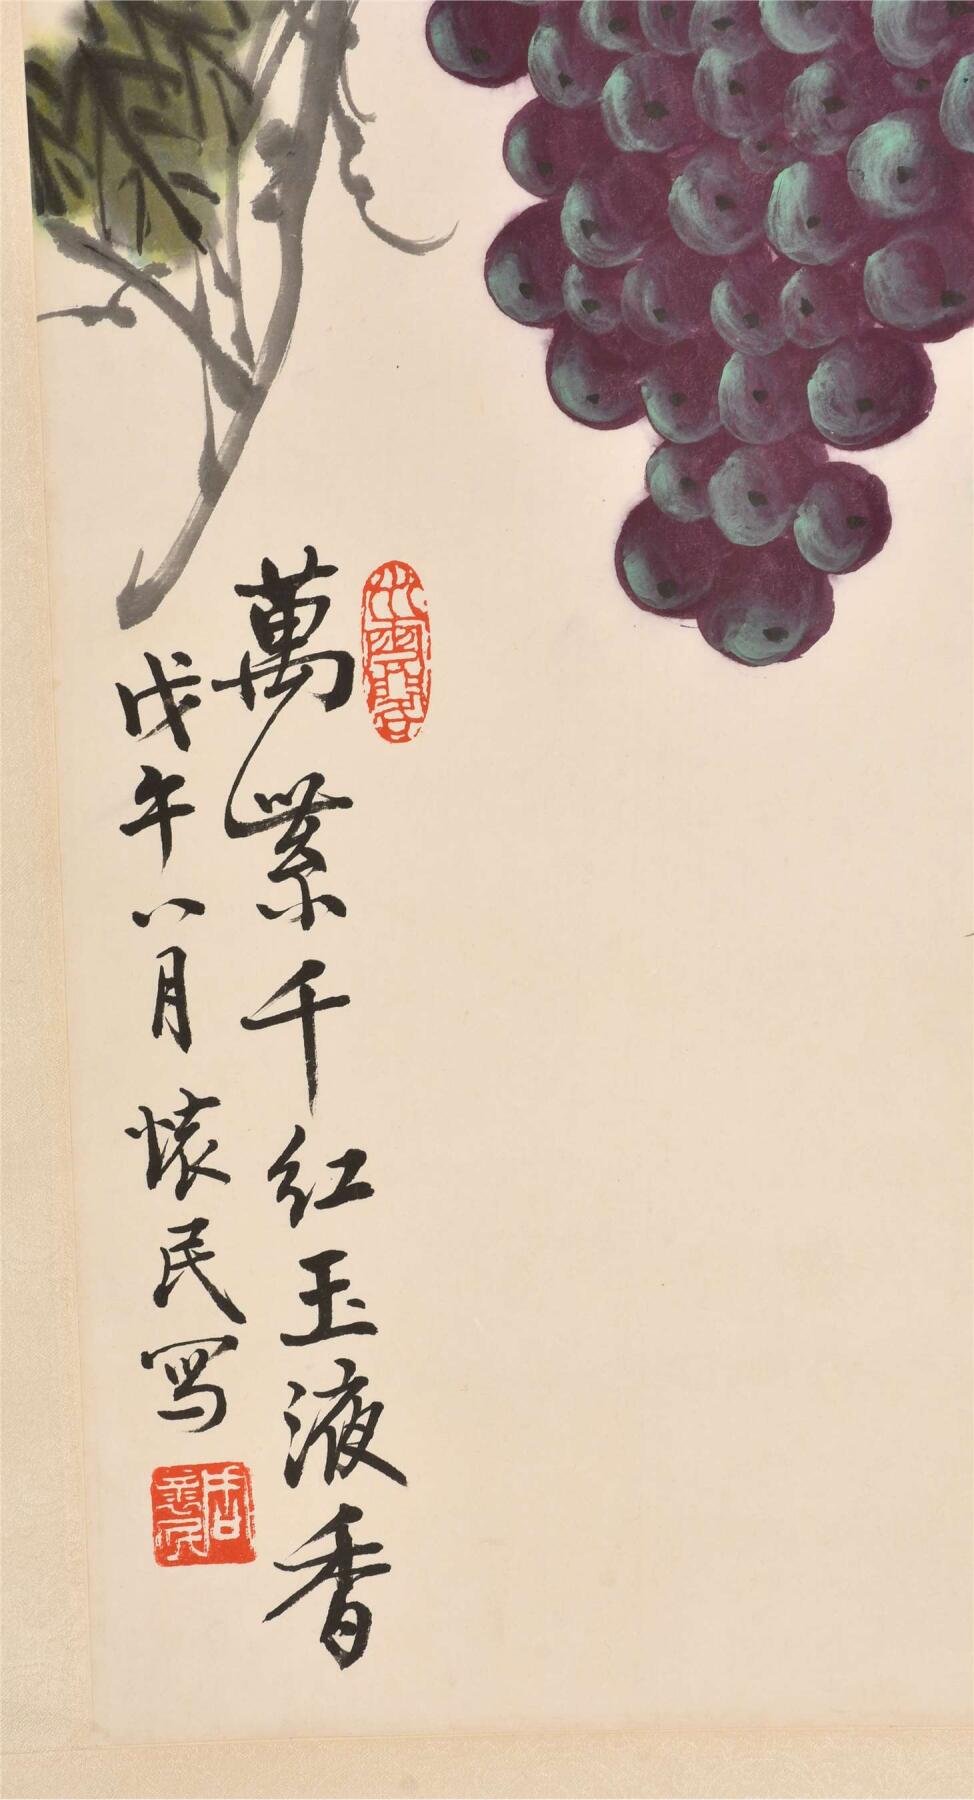 萬紫千红玉液香
戊午八月懐民写